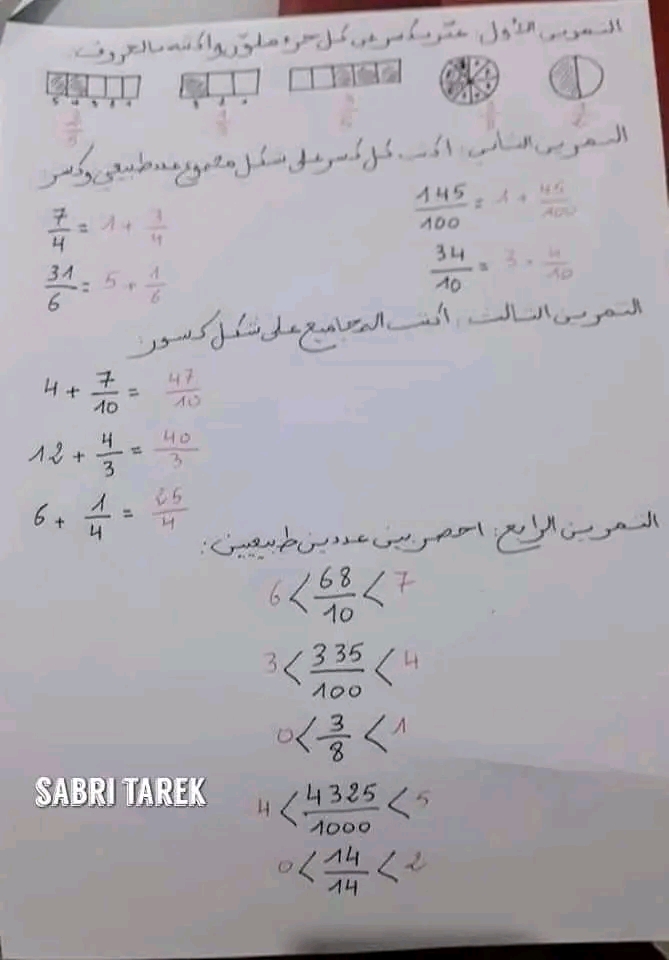 التمرين الأول: عبّر بكسر عن كل جزء ملوّن واكتبه بالحروف.
5 4 3 2 1
2/5 1/3 3/6 1/8 1/2
التمرين الثاني: اكتب كل كسر على شكل مجموع عدد طبيعي وكسر:
7/4 = 1 + 3/4
145/100 = 1 + 45/100
31/6 = 5 + 1/6
34/10 = 3 + 4/10
التمرين الثالث: اكتب المجاميع على شكل كسور:
4 + 7/10 = 47/10
12 + 4/3 = 40/3
6 + 1/4 = 25/4
التمرين الرابع: احصر بين عددين طبيعيين:
6 < 68/10 < 7
3 < 335/100 < 4
0 < 3/8 < 1
4 < 4325/1000 < 5
0 < 14/14 < 2
SABRI TAREK